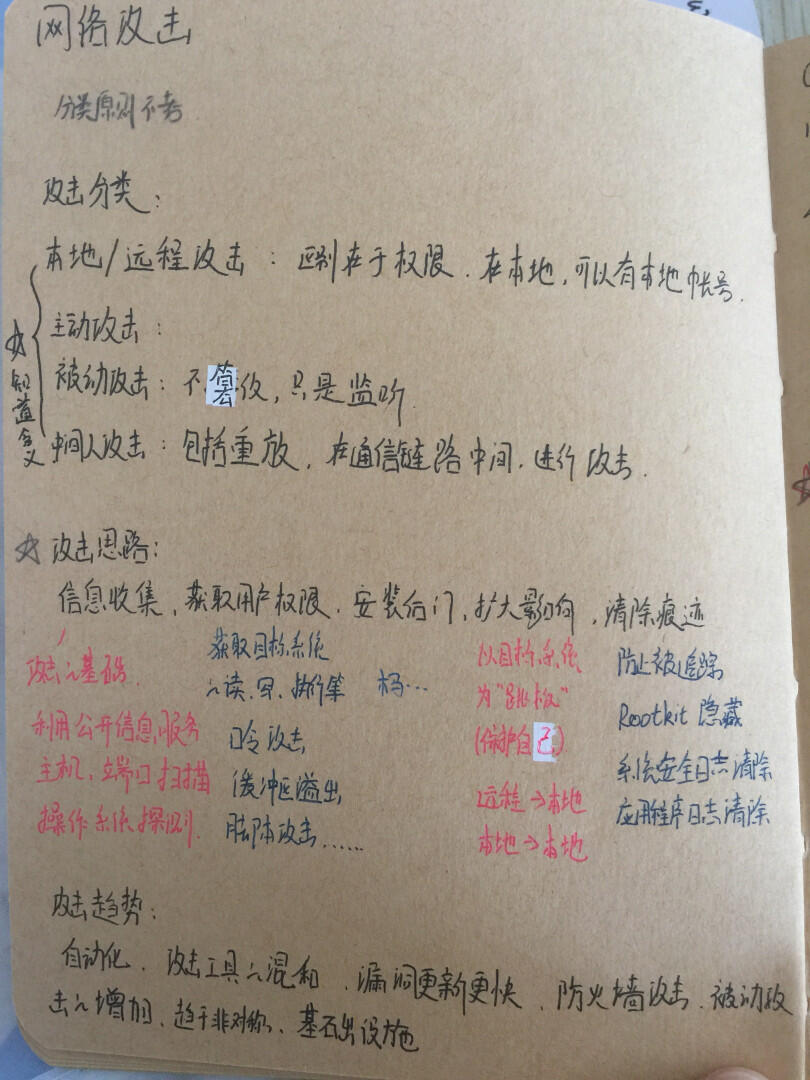 网络攻击
分类原则不考
攻击分类：
本地/远程攻击：区别在于权限．在本地，可以有本地帐号．
主动攻击：
被动攻击：不篡改，只是监听
中间人攻击：包括重放，在通信链路中间，进行攻击．
☆知道含义
☆攻击思路：
信息收集，获取用户权限．安装后门，扩大影响，清除痕迹
攻击之基础．
利用公开信息服务
主机、端口扫描
操作系统探测．
获取目标系统
之读、写、执行等
口令攻击
缓冲区溢出
脚本攻击……
木马…
以目标系统
为“跳板”
(保护自己)
远程→本地
本地→本地
防止被追踪
Rootkit 隐藏
系统安全日志清除
应用程序日志清除
攻击趋势：
自动化、攻击工具之混和、漏洞更新更快、防火墙攻击、被动攻
击之增加、趋于非对称、基础设施